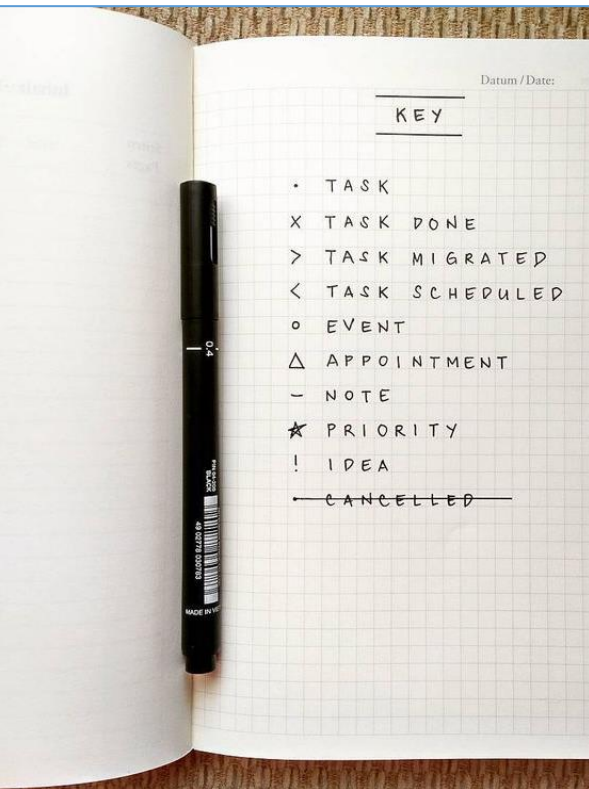 Datum / Date:
KEY
• TASK
X TASK DONE
> TASK MIGRATED
< TASK SCHEDULED
o EVENT
△ APPOINTMENT
– NOTE
☆ PRIORITY
! IDEA
• CANCELLED
0.4
PIN 04-200
BLACK
49 02778 030783
MADE IN